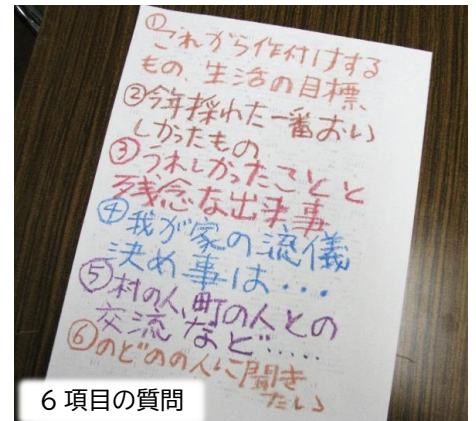 ①これから作付けする
もの、生活の目標、
②今年採れた一番おい
しかったもの
③うれしかったことと
残念な出来事
④我が家の流儀
決め事は・・・
⑤村の人、町の人との
交流など・・・・・
⑥のどのの人に聞き
たい
6項目の質問